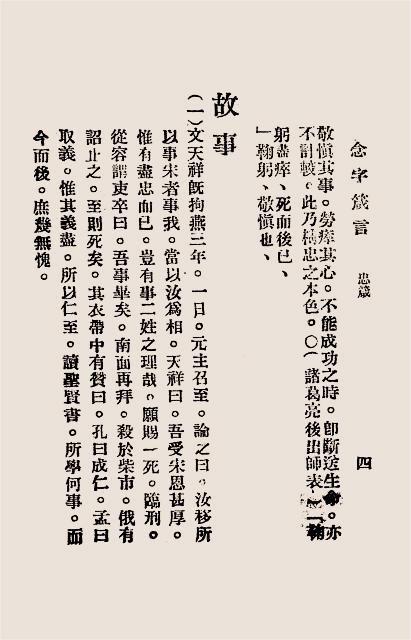 念字箴言
忠箴
四
敬慎其事。勞瘁其心。不能成功之時。卽斷送生命。亦
不計較。此乃精忠之本色。〇(諸葛亮後出師表「鞠
躬盡瘁、死而後已、
」鞠躬、敬慎也、
故事
(一)文天祥旣拘燕三年。一日。元主召至。諭之曰。汝移所
以事宋者事我。當以汝爲相。天祥曰。吾受宋恩甚厚。
惟有盡忠而已。豈有事二姓之理哉。願賜一死。臨刑。
從容謂吏卒曰。吾事畢矣。南面再拜。殺於柴市。俄有
詔止之。至則死矣。其衣帶中有贊曰。孔曰成仁。孟曰
取義。惟其義盡。所以仁至。讀聖賢書。所學何事。而
今而後。庶幾無愧。